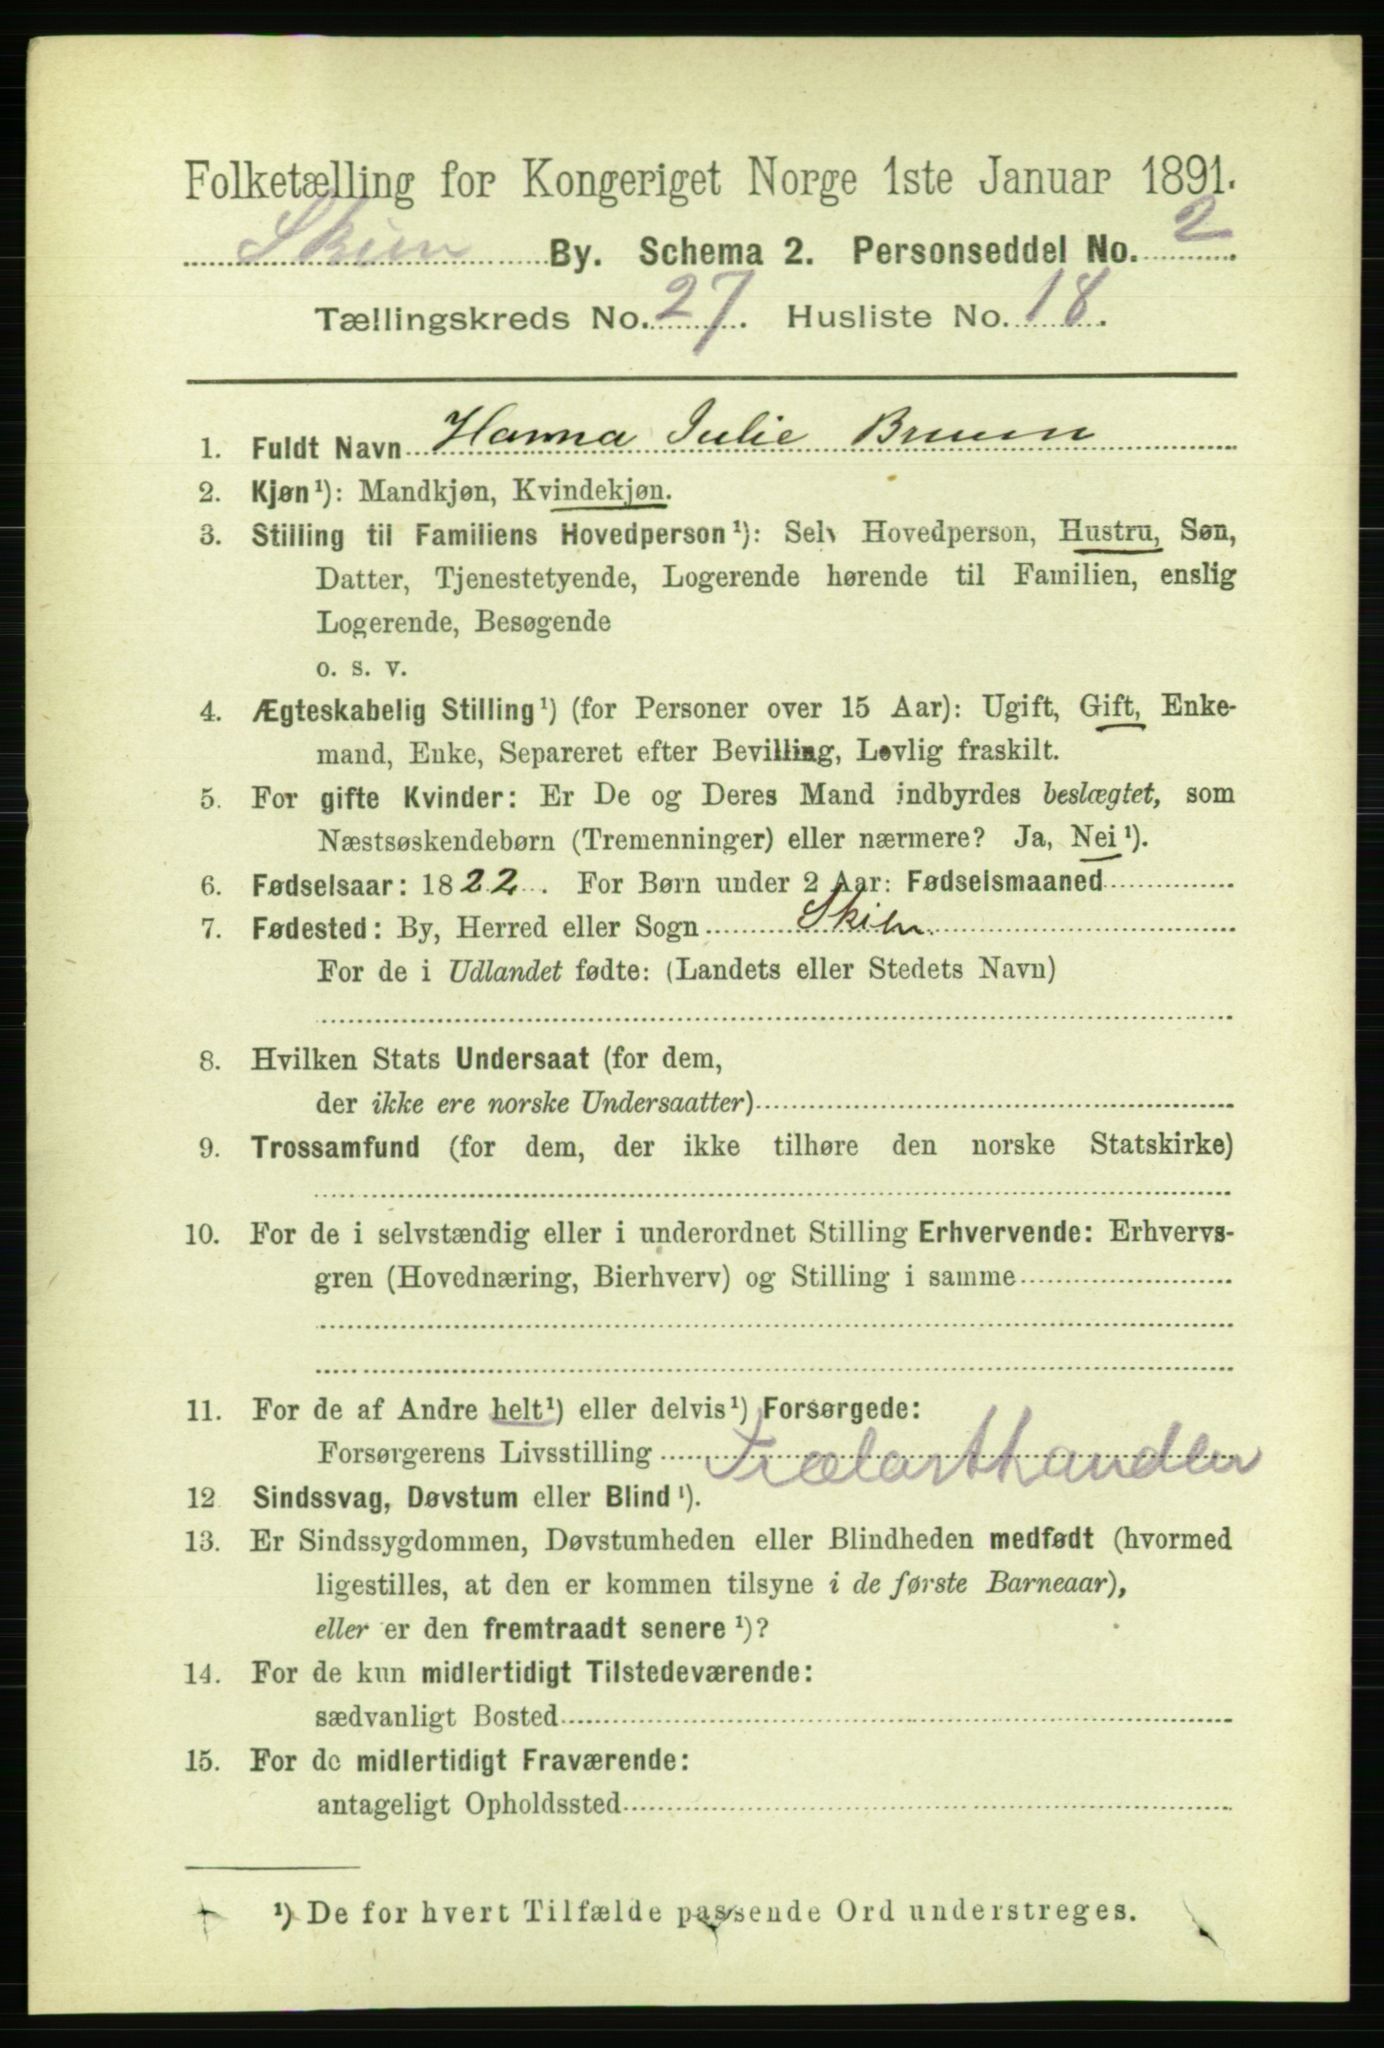 Folketælling for Kongeriget Norge 1ste Januar 1891.
Skien By. Schema 2. Personseddel No. 2
Tællingskreds No. 27. Husliste No. 18.
1. Fuldt Navn Hanna Julie Bruun
2. Kjøn¹): Mandkjøn, Kvindekjøn.
3. Stilling til Familiens Hovedperson¹): Selv Hovedperson, Hustru, Søn,
Datter, Tjenestetyende, Logerende hørende til Familien, enslig
Logerende, Besøgende
o. s. v.
4. Ægteskabelig Stilling¹) (for Personer over 15 Aar): Ugift, Gift, Enke-
mand, Enke, Separeret efter Bevilling, Lovlig fraskilt.
5. For gifte Kvinder: Er De og Deres Mand indbyrdes beslægtet, som
Næstsøskendebørn (Tremenninger) eller nærmere? Ja, Nei¹).
6. Fødselsaar: 1822. For Børn under 2 Aar: Fødselsmaaned
7. Fødested: By, Herred eller Sogn Skien
For de i Udlandet fødte: (Landets eller Stedets Navn)
8. Hvilken Stats Undersaat (for dem,
der ikke ere norske Undersaatter)
9. Trossamfund (for dem, der ikke tilhøre den norske Statskirke)
10. For de i selvstændig eller i underordnet Stilling Erhvervende: Erhvervs-
gren (Hovednæring, Bierhverv) og Stilling i samme
11. For de af Andre helt¹) eller delvis¹) Forsørgede:
Forsørgerens Livsstilling Trælasthandler
12 Sindssvag, Døvstum eller Blind¹).
13. Er Sindssygdommen, Døvstumheden eller Blindheden medfødt (hvormed
ligestilles, at den er kommen tilsyne i de første Barneaar),
eller er den fremtraadt senere¹)?
14. For de kun midlertidigt Tilstedeværende:
sædvanligt Bosted
15. For de midlertidigt Fraværende:
antageligt Opholdssted
¹) De for hvert Tilfælde passende Ord understreges.